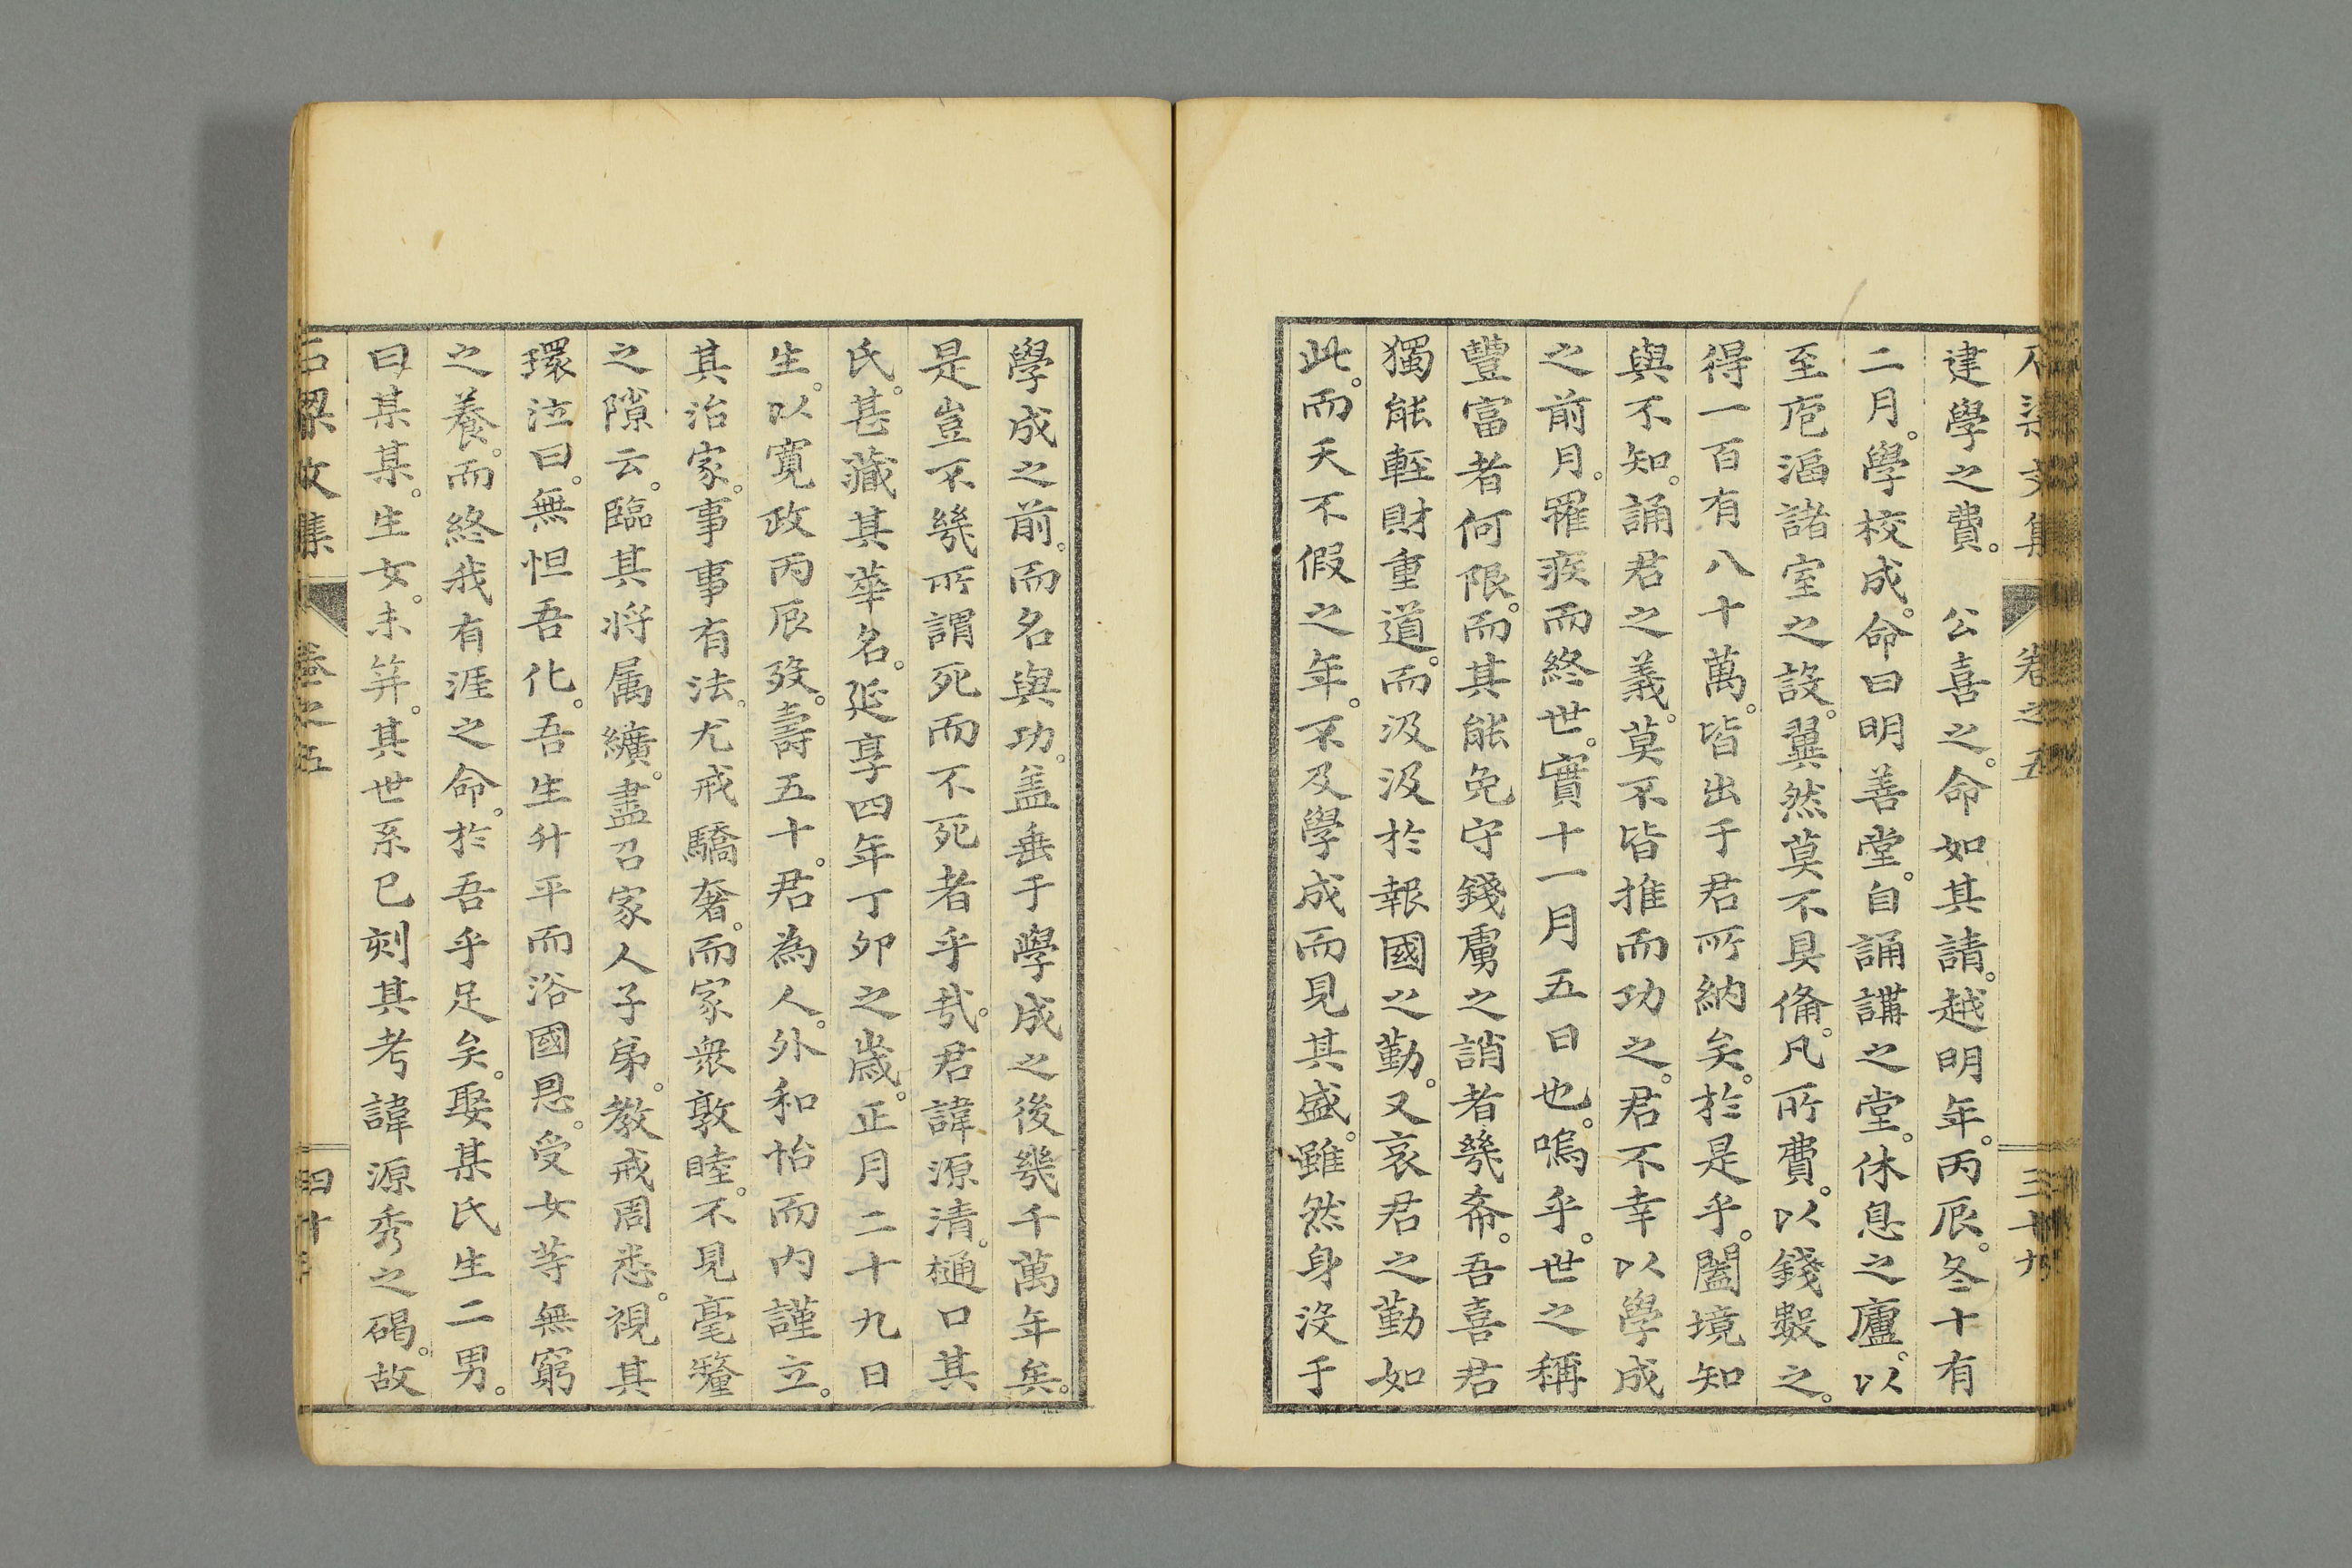 建學之費。　公喜之。命如其請。越明年。丙辰。冬十有
二月。學校成。命曰明善堂。自誦講之堂。休息之廬。以
至庖湢諸室之設。翼然莫不具俻。凡所費。以錢數之。
得一百有八十萬。皆出于君所納矣。於是乎。闔境知
與不知。誦君之義。莫不皆推而功之。君不幸以學成
之前月。罹疾而終世。實十一月五日也。嗚乎。世之稱
豐富者何限。而其能免守錢虜之誚者幾希。吾喜君
獨能輕財重道。而汲汲於報國之勤。又哀君之勤如
此。而天不假之年。不及學成而見其盛。雖然身沒于
學成之前。而名與功。盖垂于學成之後幾千萬年矣。
是豈不幾所謂死而不死者乎哉。君諱源清。樋口其
氏。甚藏其華名。延享四年丁夘之歲。正月二十九日
生。以寛政丙辰歿。壽五十。君為人。外和怡而内謹立。
其治家。事事有法。尤戒驕奢。而家衆敦睦。不見毫釐
之隙云。臨其将属纊。盡召家人子弟。教戒周悉。視其
環泣曰。無怛吾化。吾生升平而浴國恩。受女等無窮
之養。而終我有涯之命。於吾乎足矣。娶某氏生二男。
曰某某。生女。未笄。其世系已刻其考諱源秀之碣。故
石梁文集　卷之五　四十